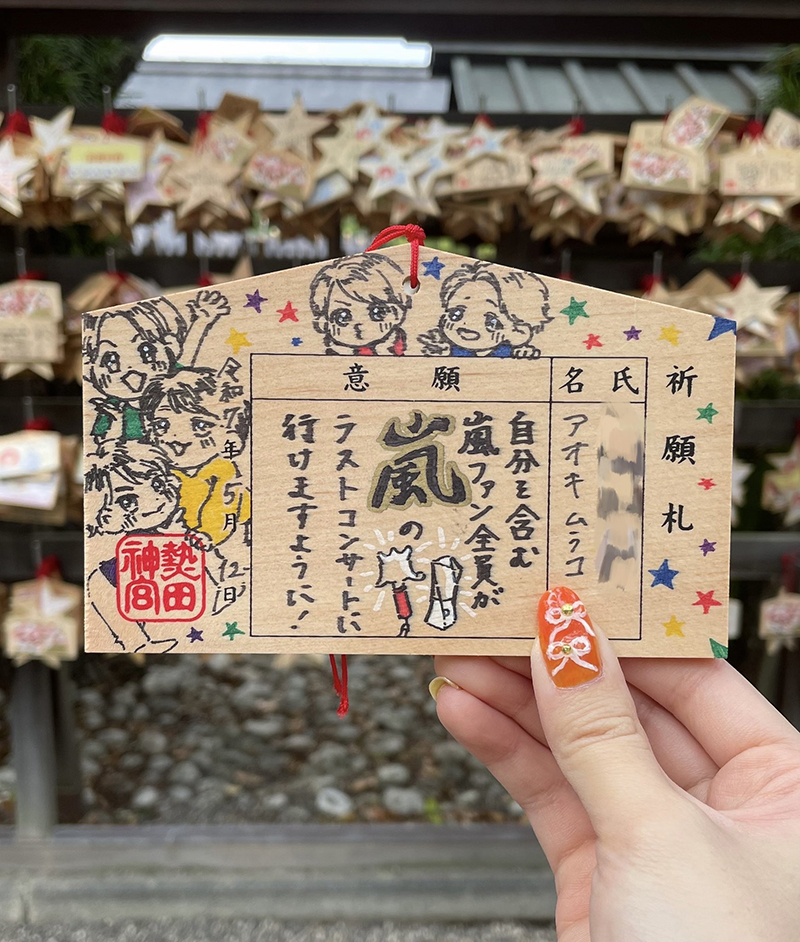 祈願札
氏名
アオキ ムラコ
願意
自分を含む
嵐ファン全員が
嵐の
ラストコンサートに
行けますように！
令和7年5月12日
熱田
神宮